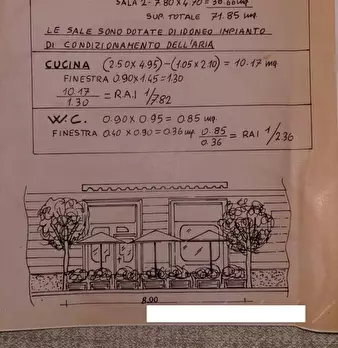 SALA 2- 7.80 X 4.70 = 36.66 mq.
SUP. TOTALE 71.85 mq.
LE SALE SONO DOTATE DI IDONEO IMPIANTO
DI CONDIZIONAMENTO DELL'ARIA
CUCINA (2.50 X 4.95) - (1.05 X 2.10) = 10.17 mq.
FINESTRA 0.90 X 1.45 = 1.30
10.17 / 1.30 = R.A.I 1/7.82
W.C. 0.90 X 0.95 = 0.85 mq.
FINESTRA 0.40 X 0.90 = 0.36 mq. 0.85 / 0.36 = RAI 1/2.36
8.00